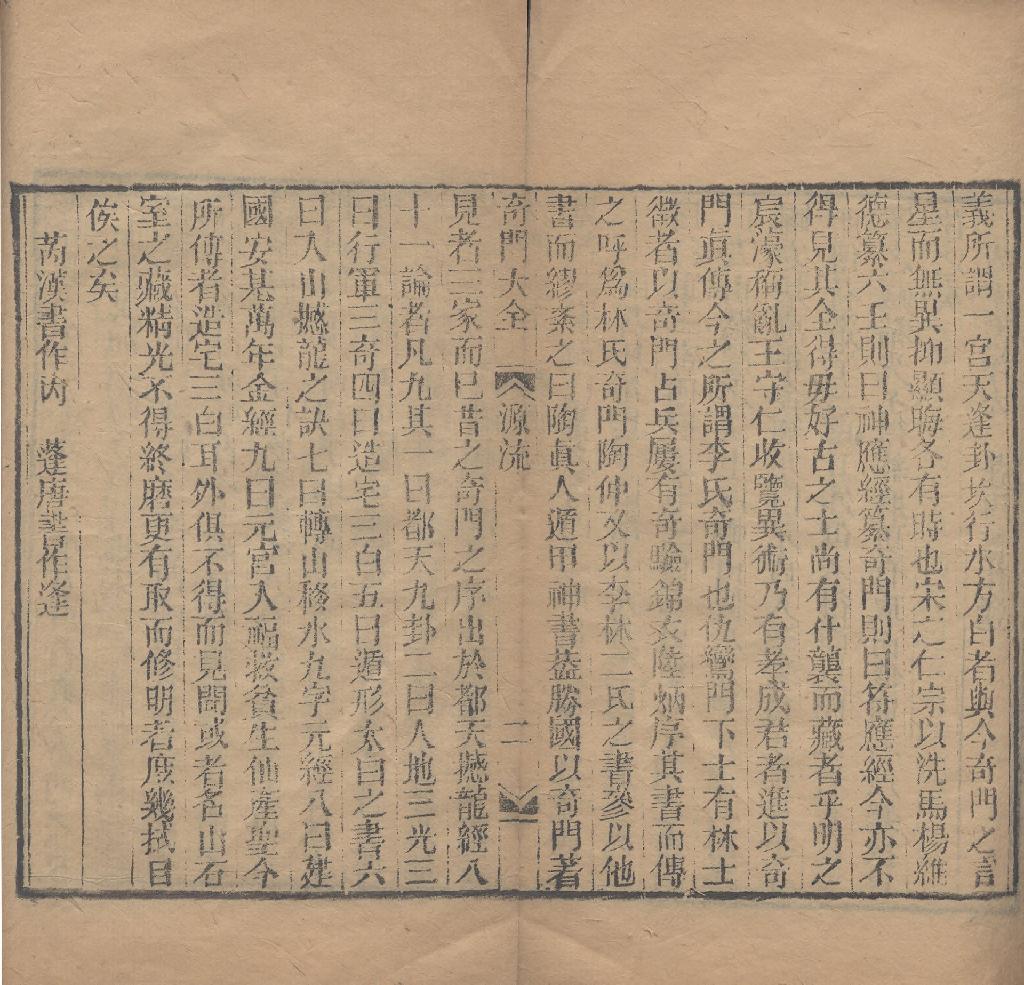 義所謂一宮天逢卦坎行水方白者與今奇門之言
星而無異抑顯晦各有時也宋之仁宗以洗馬楊維
德纂六壬則曰神應經纂奇門則曰符應經今亦不
得見其全得毋好古之士尚有什襲而藏者乎明之
宸濠稱亂王守仁收覽異術乃有孝成君者進以奇
門真傳今之所謂李氏奇門也仇鸞門下士有林士
徵者以奇門占兵屢有奇驗錦衣陸炳序其書而傳
之呼為林氏奇門陶仲文以李林二氏之書參以他
書而繆紊之曰陶真人遁甲神書蓋勝國以奇門著
奇門大全 源流 二
見者三家而已昔之奇門之序出於都天撼龍經八
十一論者凡九其一曰都天九卦二曰人地三光三
曰行軍三奇四曰造宅三白五曰遁形太白之書六
曰入山撼龍之訣七曰轉山移水九字元經八曰建
國安基萬年金經九曰元宮入福救貧生仙產聖今
所傳者造宅三白耳外俱不得而見聞或者名山石
室之藏精光不得終磨更有取而修明者庶幾拭目
俟之矣
苪漢書作芮 蓬唐書作逢